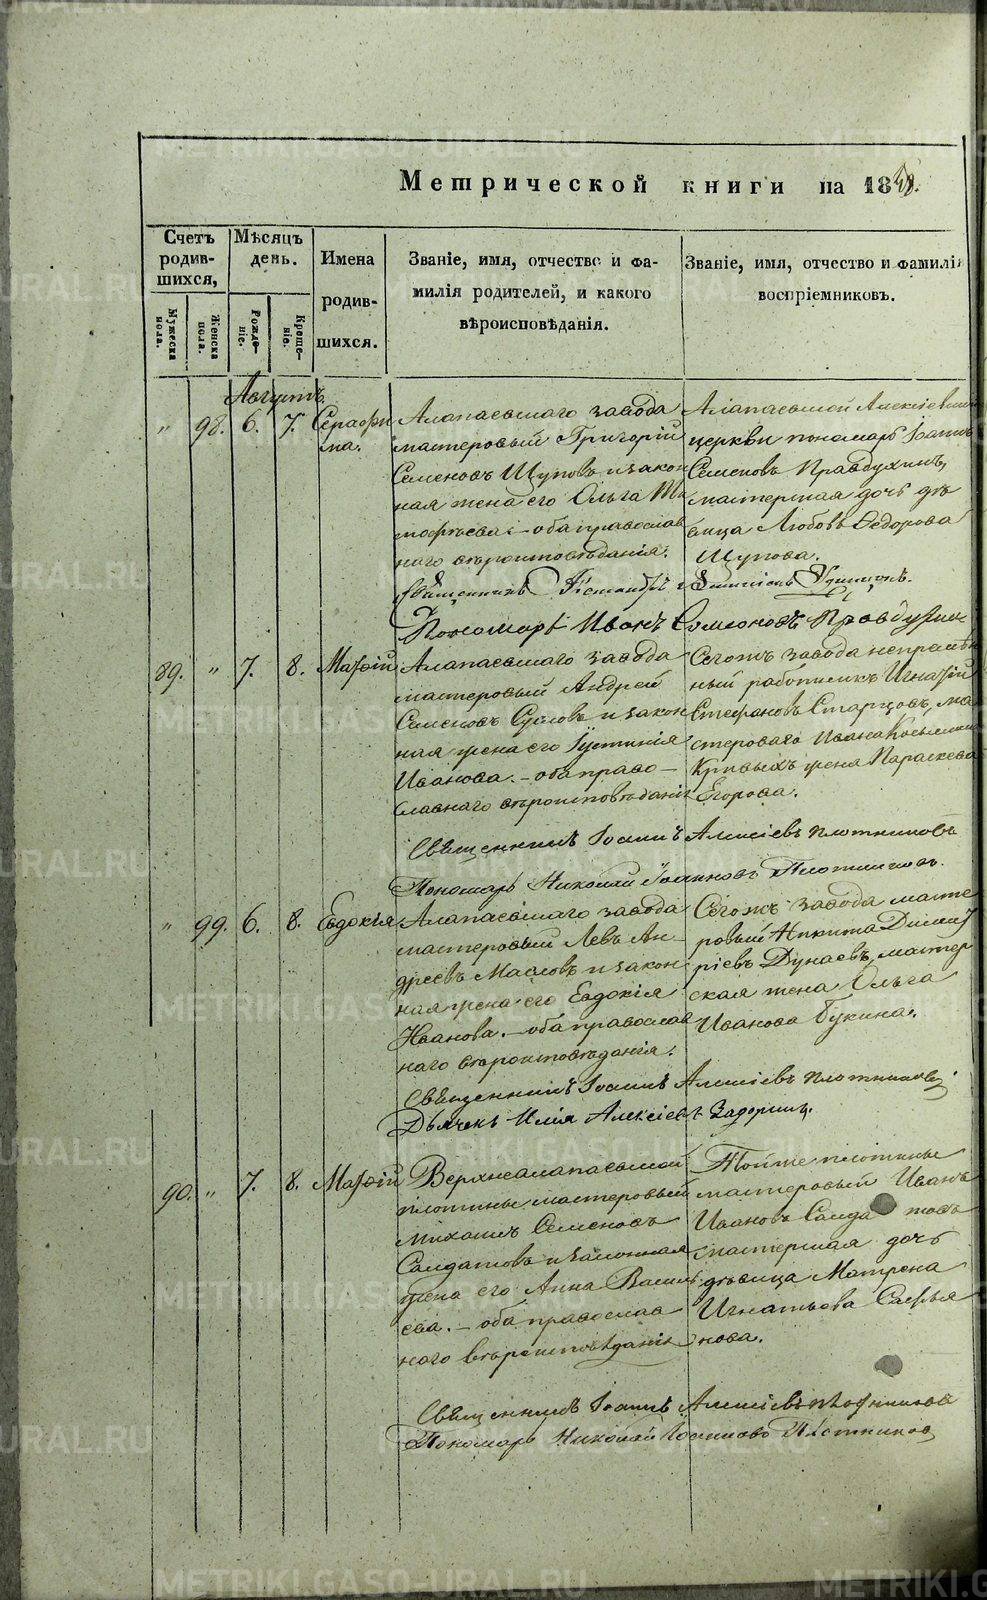 METRIKI.GASO-URAL.RU
Метрической книги на 18
Счетъ родившихся,
Мужеска пола.
Женска пола.
Мѣсяцъ день.
Рожденіе.
Крещеніе.
Имена родившихся.
Званіе, имя, отчество и фамилія родителей, и какого вѣроисповѣданія.
Званіе, имя, отчество и фамилія воспріемниковъ.
Августъ.
" 98. 6. 7. Серафима.
Алапаевскаго завода
мастеровый Григорій
Семеновъ Щуповъ и закон
ная жена его Ольга Ти
мофѣева: – оба православ
наго вѣроисповѣданія.
Алапаевской Алексіевской
церкви пономарь Іоаннъ
Семеновъ Правдухинъ,
мастерская дочь дѣ
вица Любовь Ѳедорова
Щупова.
Священникъ
Пономарь Иванъ Семеновъ Правдухин
89. " 7. 8. Матѳій
Алапаевскаго завода
мастеровый Андрей
Семеновъ Сусловъ и закон
ная жена его Іустинія
Иванова. – оба право–
славнаго вѣроисповѣданія
Сегожъ завода непремѣн
ный работникъ Игнатій
Стефановъ Старцовъ, ма
стероваго Ивана Косьмина
Кривыхъ жена Параскева
Егорова.
Священникъ Іоаннъ Алексіевъ Плотниковъ
Пономарь Николай Іоанновъ Плотниковъ.
" 99. 6. 8. Евдокія
Алапаевскаго завода
мастеровый Левъ Ан–
дреевъ Масловъ и закон
ная жена его Евдокія
Иванова. – оба православ
наго вѣроисповѣданія.
Сегожъ завода масте
ровый Никита Димит
ріевъ Дунаевъ, мастер
ская жена Ольга
Иванова Букина.
Священникъ Іоаннъ Алексіевъ Плотниковъ.
Дьячекъ Илія Алексіевъ Задоринъ.
90. " 7. 8. Матѳій
Верхнеалапаевской
плотины мастеровый
Михаилъ Семеновъ
Салдатовъ и законная
жена его Анна Василь
ева. – оба православ
наго вѣроисповѣданія
Тойже плотины
мастеровый Иванъ
Ивановъ Салда товъ
мастерская дочь
дѣвица Матрена
Игнатьева Сафья
нова.
Священникъ Іоаннъ Алексіевъ Плотниковъ
Пономарь Николай Іоанновъ Плотников